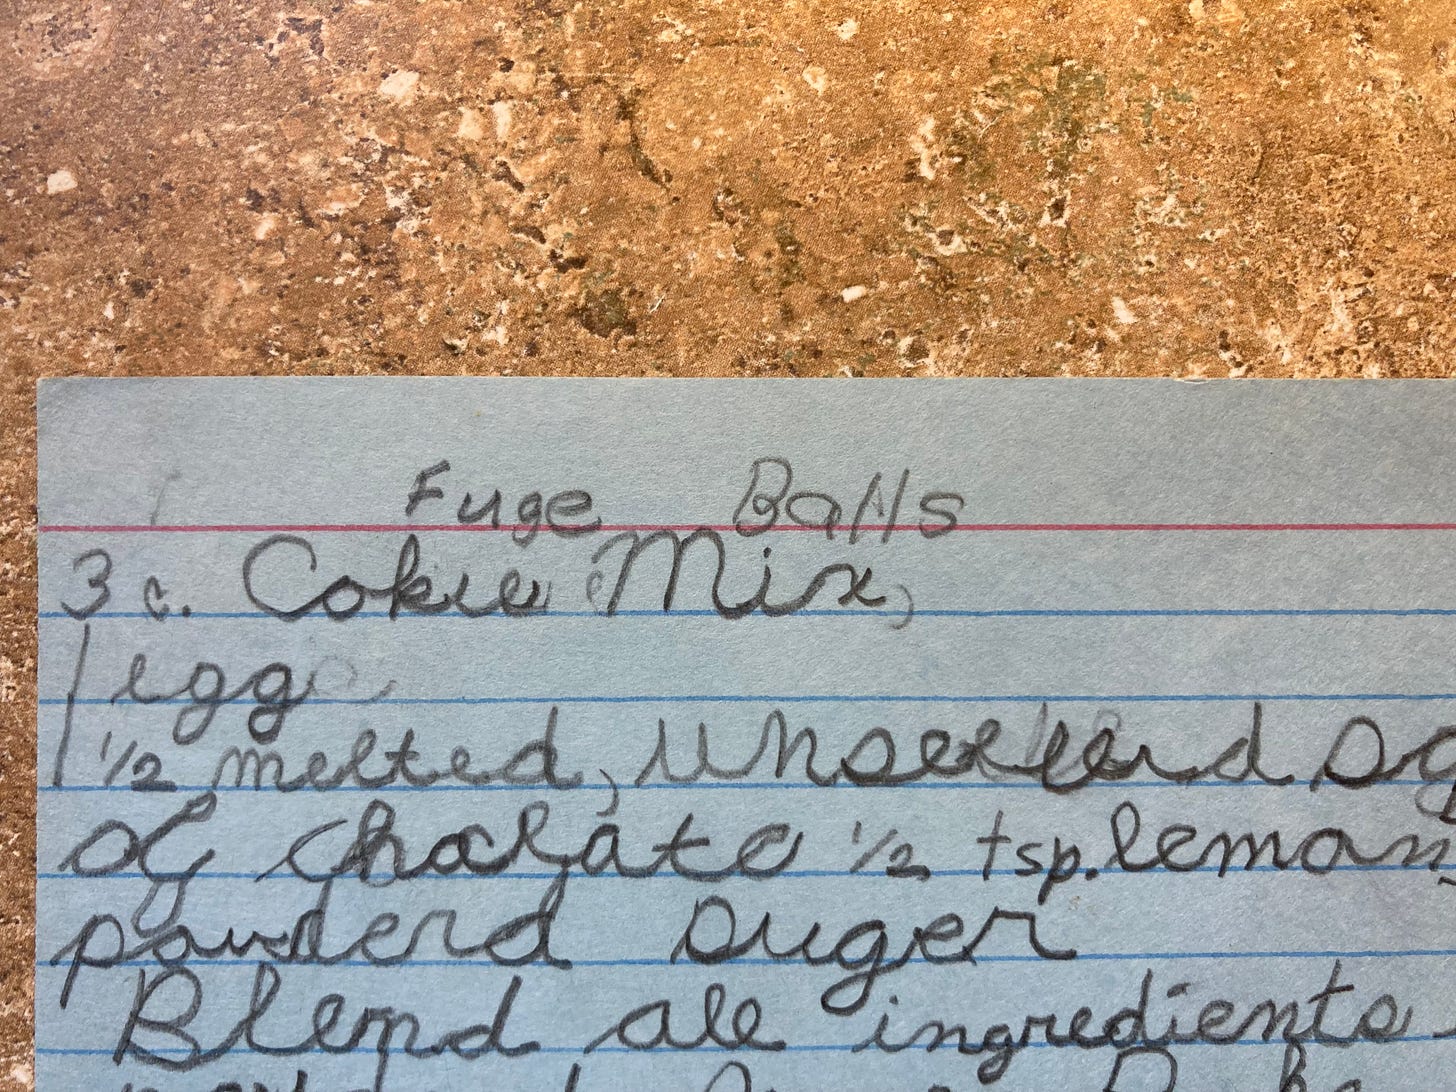 Fuge Balls
3 c. Cokie Mix,
1 egg
1 1/2 melted, sq
of chocalate 1/2 tsp. lemon
powderd suger
Blend all ingredients